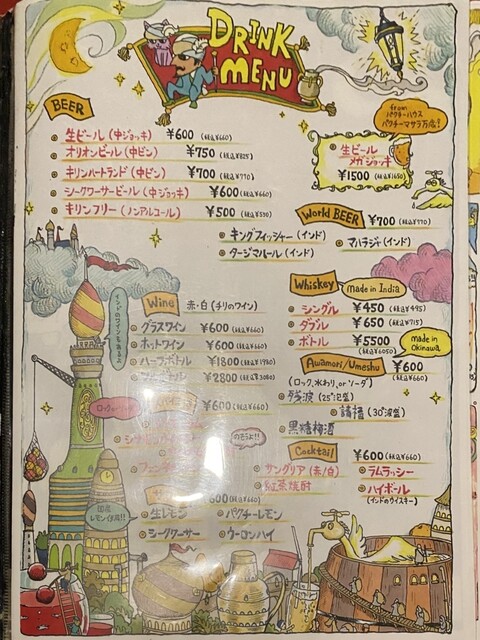 DRINK
MENU
BEER
生ビール (中ジョッキ) ¥600 (税込¥660)
オリオンビール (中ビン) ¥750 (税込¥825)
キリンハートランド (中ビン) ¥700 (税込¥770)
シークワーサービール (中ジョッキ) ¥600 (税込¥660)
キリンフリー (ノンアルコール) ¥500 (税込¥550)
from
パクチーハウス
パクチーマサラ万depth
生ビール
メガジョッキ
¥1500 (税込¥1650)
World BEER ¥700 (税込¥770)
キングフィッシャー (インド)
マハラジャ (インド)
タージマハール (インド)
インドのワインもあるよ
Wine 赤・白 (チリのワイン)
グラスワイン ¥600 (税込¥660)
ホットワイン ¥600 (税込¥660)
ハーフボトル ¥1800 (税込¥1980)
ボトル ¥2800 (税込¥3080)
Whiskey made in India
シングル ¥450 (税込¥495)
ダブル ¥650 (税込¥715)
ボトル ¥5500
(税込¥6050)
made in
Okinawa
Awamori/Umeshu ¥600
(税込¥660)
(ロック、水わり、or ソーダ)
残波 (25°泡盛)
(30°泡盛)
黒糖梅酒
¥600 (税込¥660)
Cocktail ¥600 (税込¥660)
サングリア (赤/白)
ラムラッシー
紅茶焼酎
ハイボール
(インドのウイスキー)
600 (税込¥660)
生レモン
パクチーレモン
シークワーサー
ウーロンハイ
国産
レモン使用!!